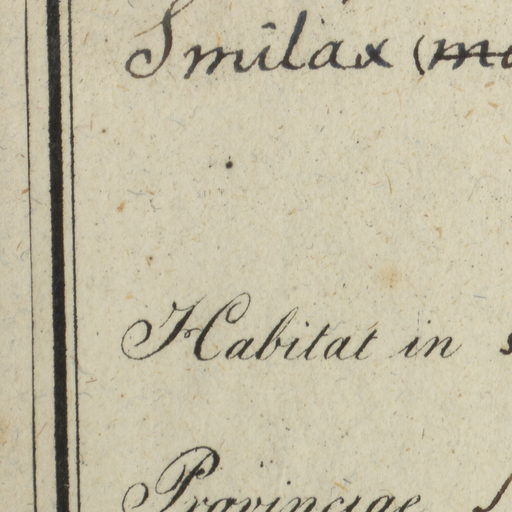 Smilax (
Habitat in
Provinciae